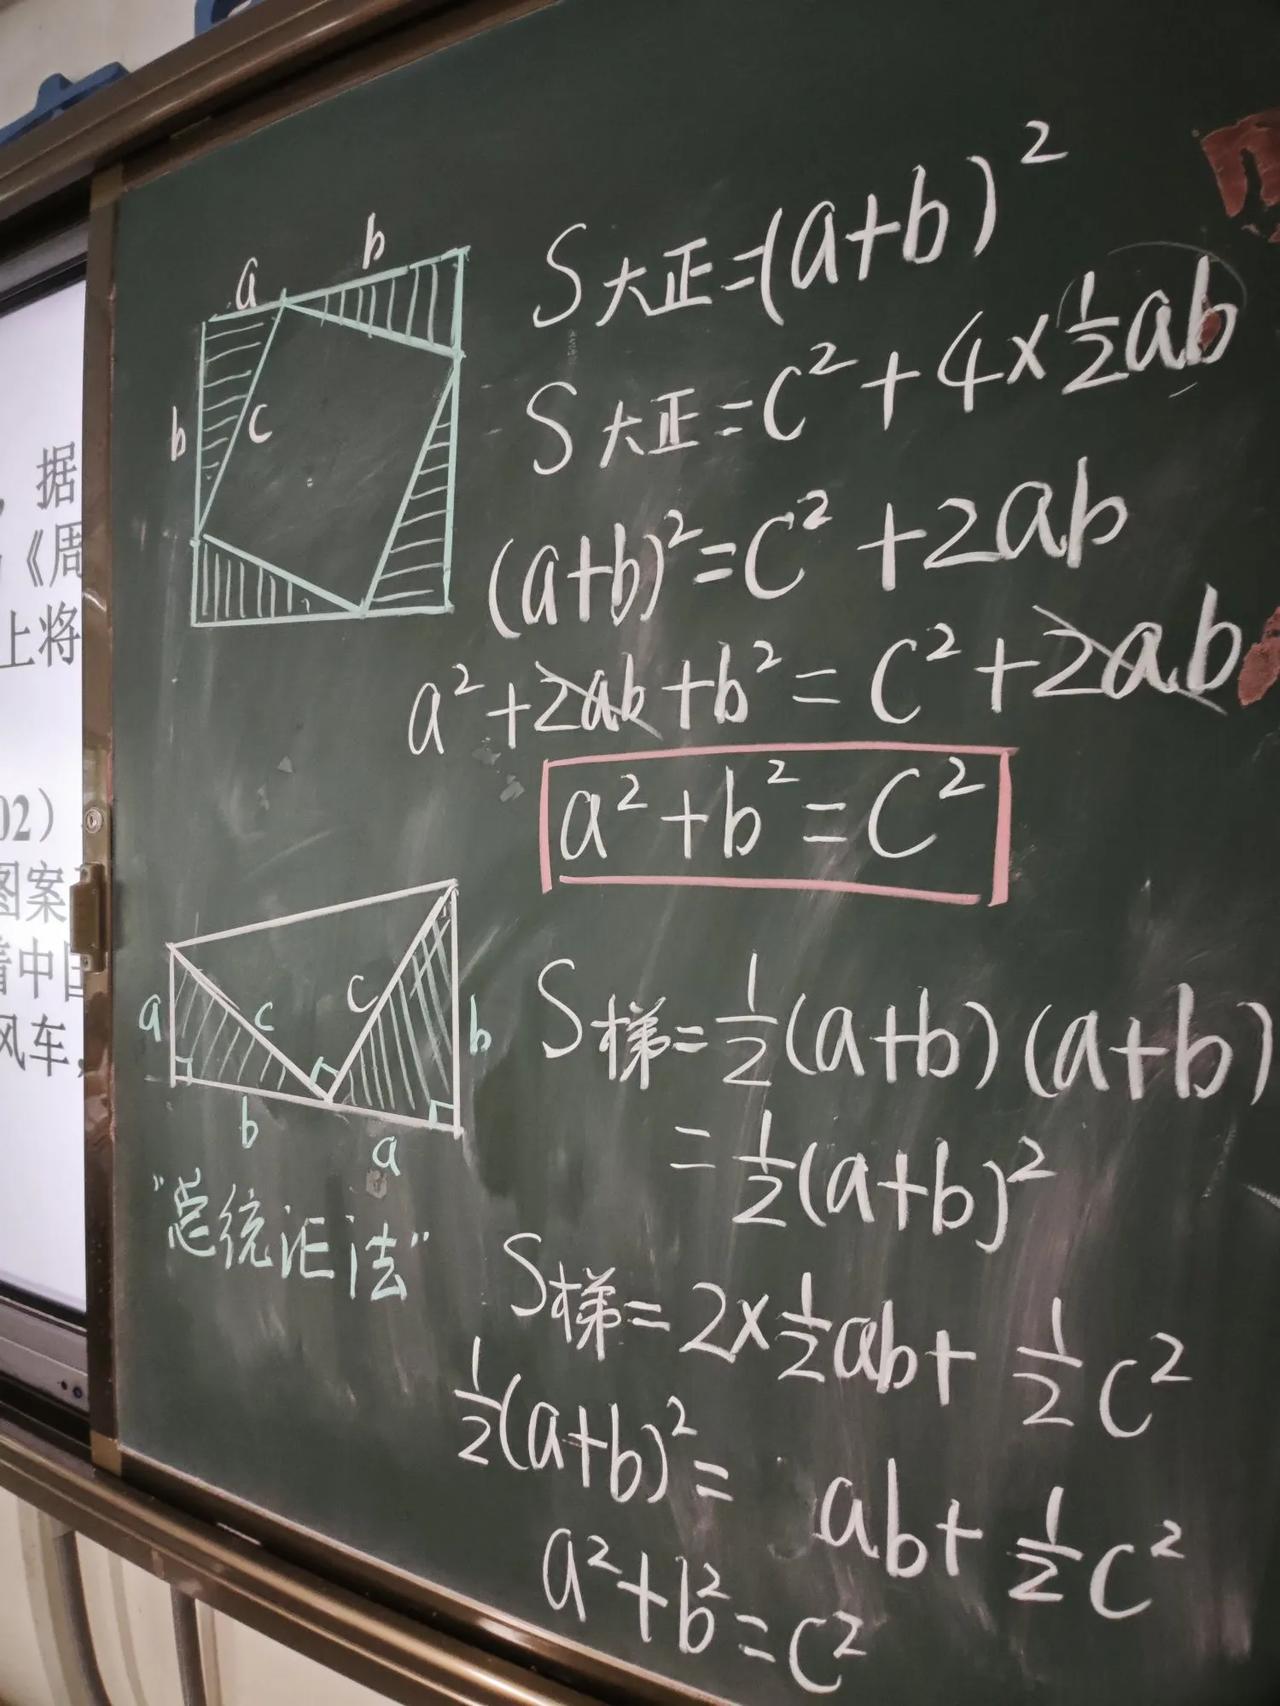 ，据
《周
上将
02）
图案
着中国
风车，
a
b
b
c
S大正=(a+b)²
S大正=c²+4×½ab
(a+b)²=c²+2ab
a²+2ab+b²=c²+2ab
a²+b²=c²
a
c
c
b
b
a
"总统证法"
S梯=½(a+b)(a+b)
=½(a+b)²
S梯=2×½ab+½c²
½(a+b)²=ab+½c²
a²+b²=c²